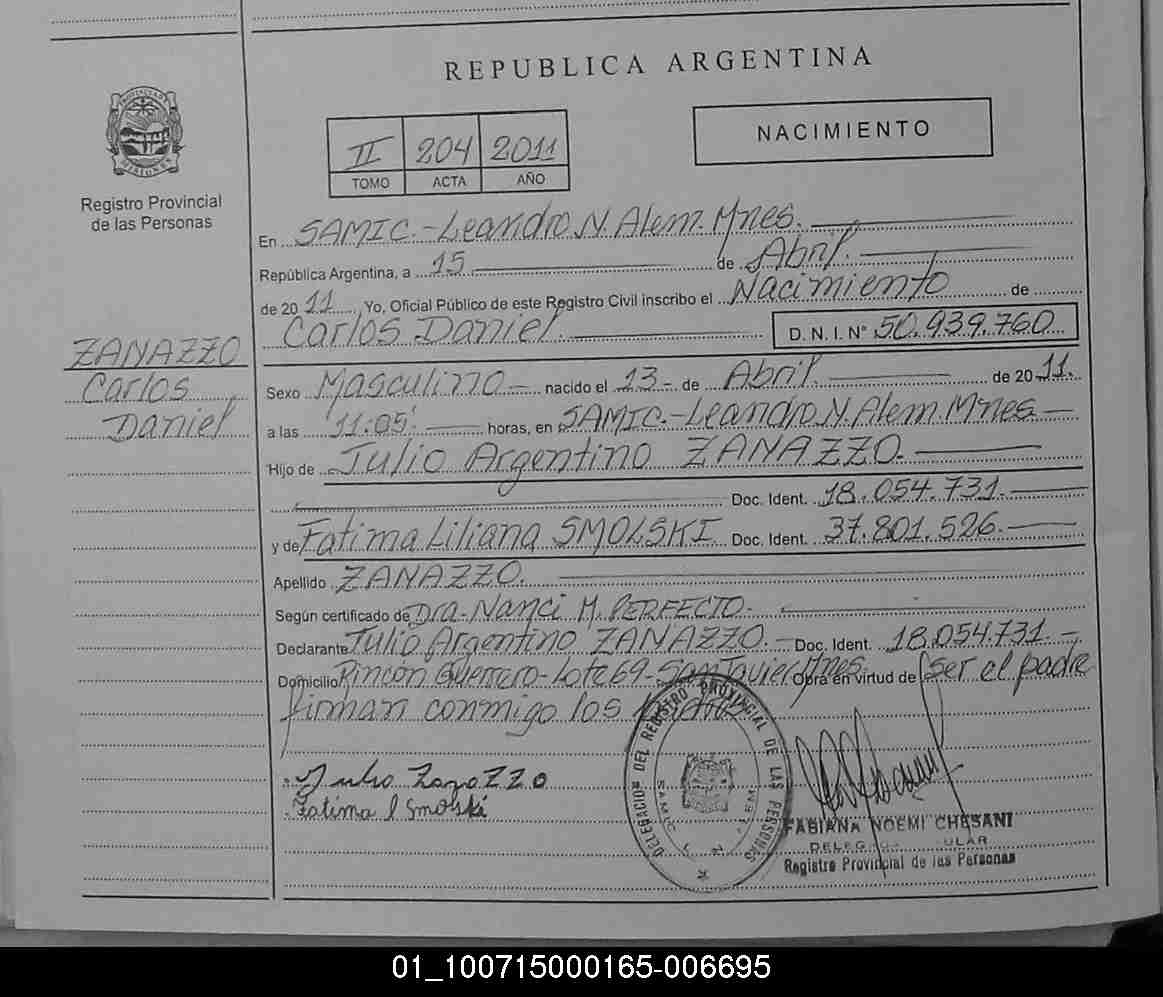 REPUBLICA ARGENTINA
PROVINCIA DE MISIONES
Registro Provincial
de las Personas
II 204 2011
TOMO ACTA AÑO
NACIMIENTO
ZANAZZO
Carlos
Daniel
En SAMIC.-Leandro N. Alem. Mnes.
República Argentina, a 15 de Abril.
de 2011 Yo, Oficial Público de este Registro Civil inscribo el Nacimiento de
Carlos Daniel. D. N. I. N° 50.939.760
Sexo Masculino nacido el 13 de Abril. de 2011.
a las 11:05 horas, en SAMIC.-Leandro N. Alem. Mnes
Hijo de Julio Argentino ZANAZZO.
Doc. Ident. 18.054.731.
y de Fatima Liliana SMOLSKI Doc. Ident. 37.801.526.
Apellido ZANAZZO.
Según certificado de Dra. Nanci M. PERFECTO.
Declarante Julio Argentino ZANAZZO. Doc. Ident. 18.054.731.
Domicilio Rincón Guerrero-Lote 69-San Javier, Mnes. Obra en virtud de ser el padre
firman conmigo los
Julio Zanazzo
Fatima l Smoski
DELEGACION DEL REGISTRO PROVINCIAL DE LAS PERSONAS
SAMIC L. N. ALEM
FABIANA NOEMI CHESANI
Registro Provincial de las Personas
01_100715000165-006695